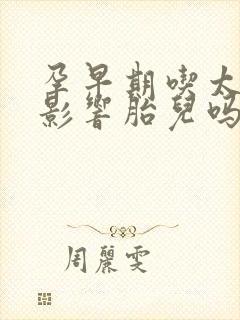 孕早期喫太
影響胎兒嗎
周麗雯